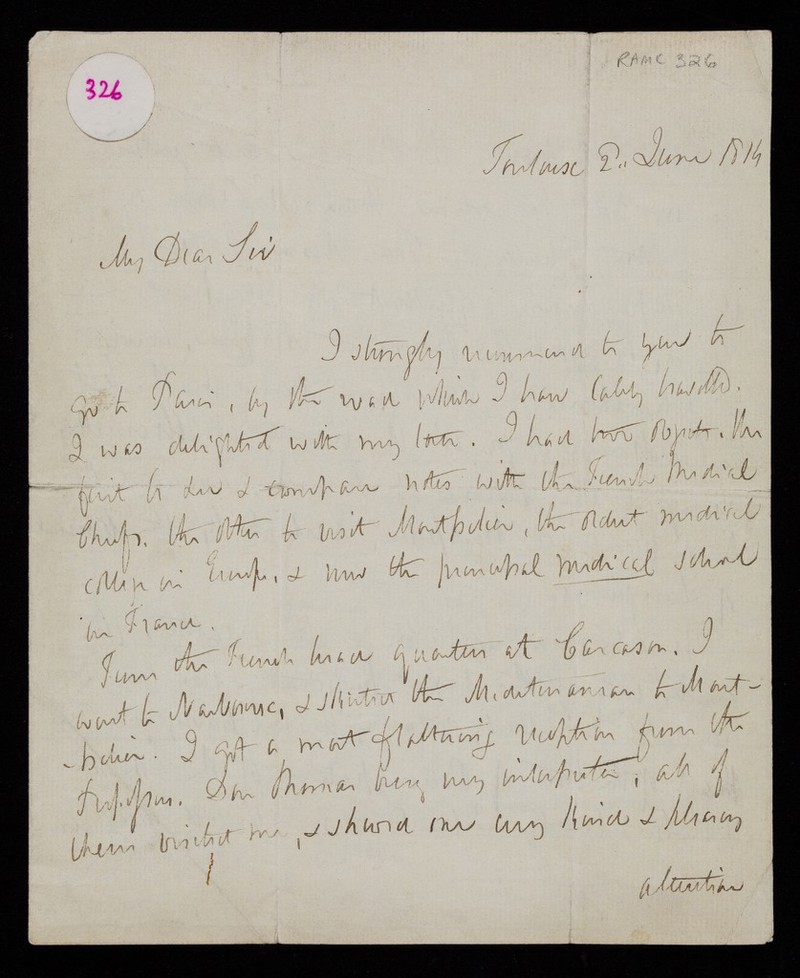 326
RAMC 326
Toulouse 2.. June 1814
My Dear Sir
I strongly recommend to you to
go to Paris, by the road which I have lately travelled.
I was delighted with my tour. I had two objects. the
first to see & compare notes with the French Medical
Chiefs. the other to visit Montpelier, the oldest medical
college in Europe, & now the principal medical school
in France.
From the French head quarters at Carcason. I
went to Narbonne, & skirted the Mediterranean to Mont-
-pelier. I got a most flattering reception from the
Professors. Don Thomas being my interpreter; all of
them visited me, & shewed me every kind & pleasing
attention